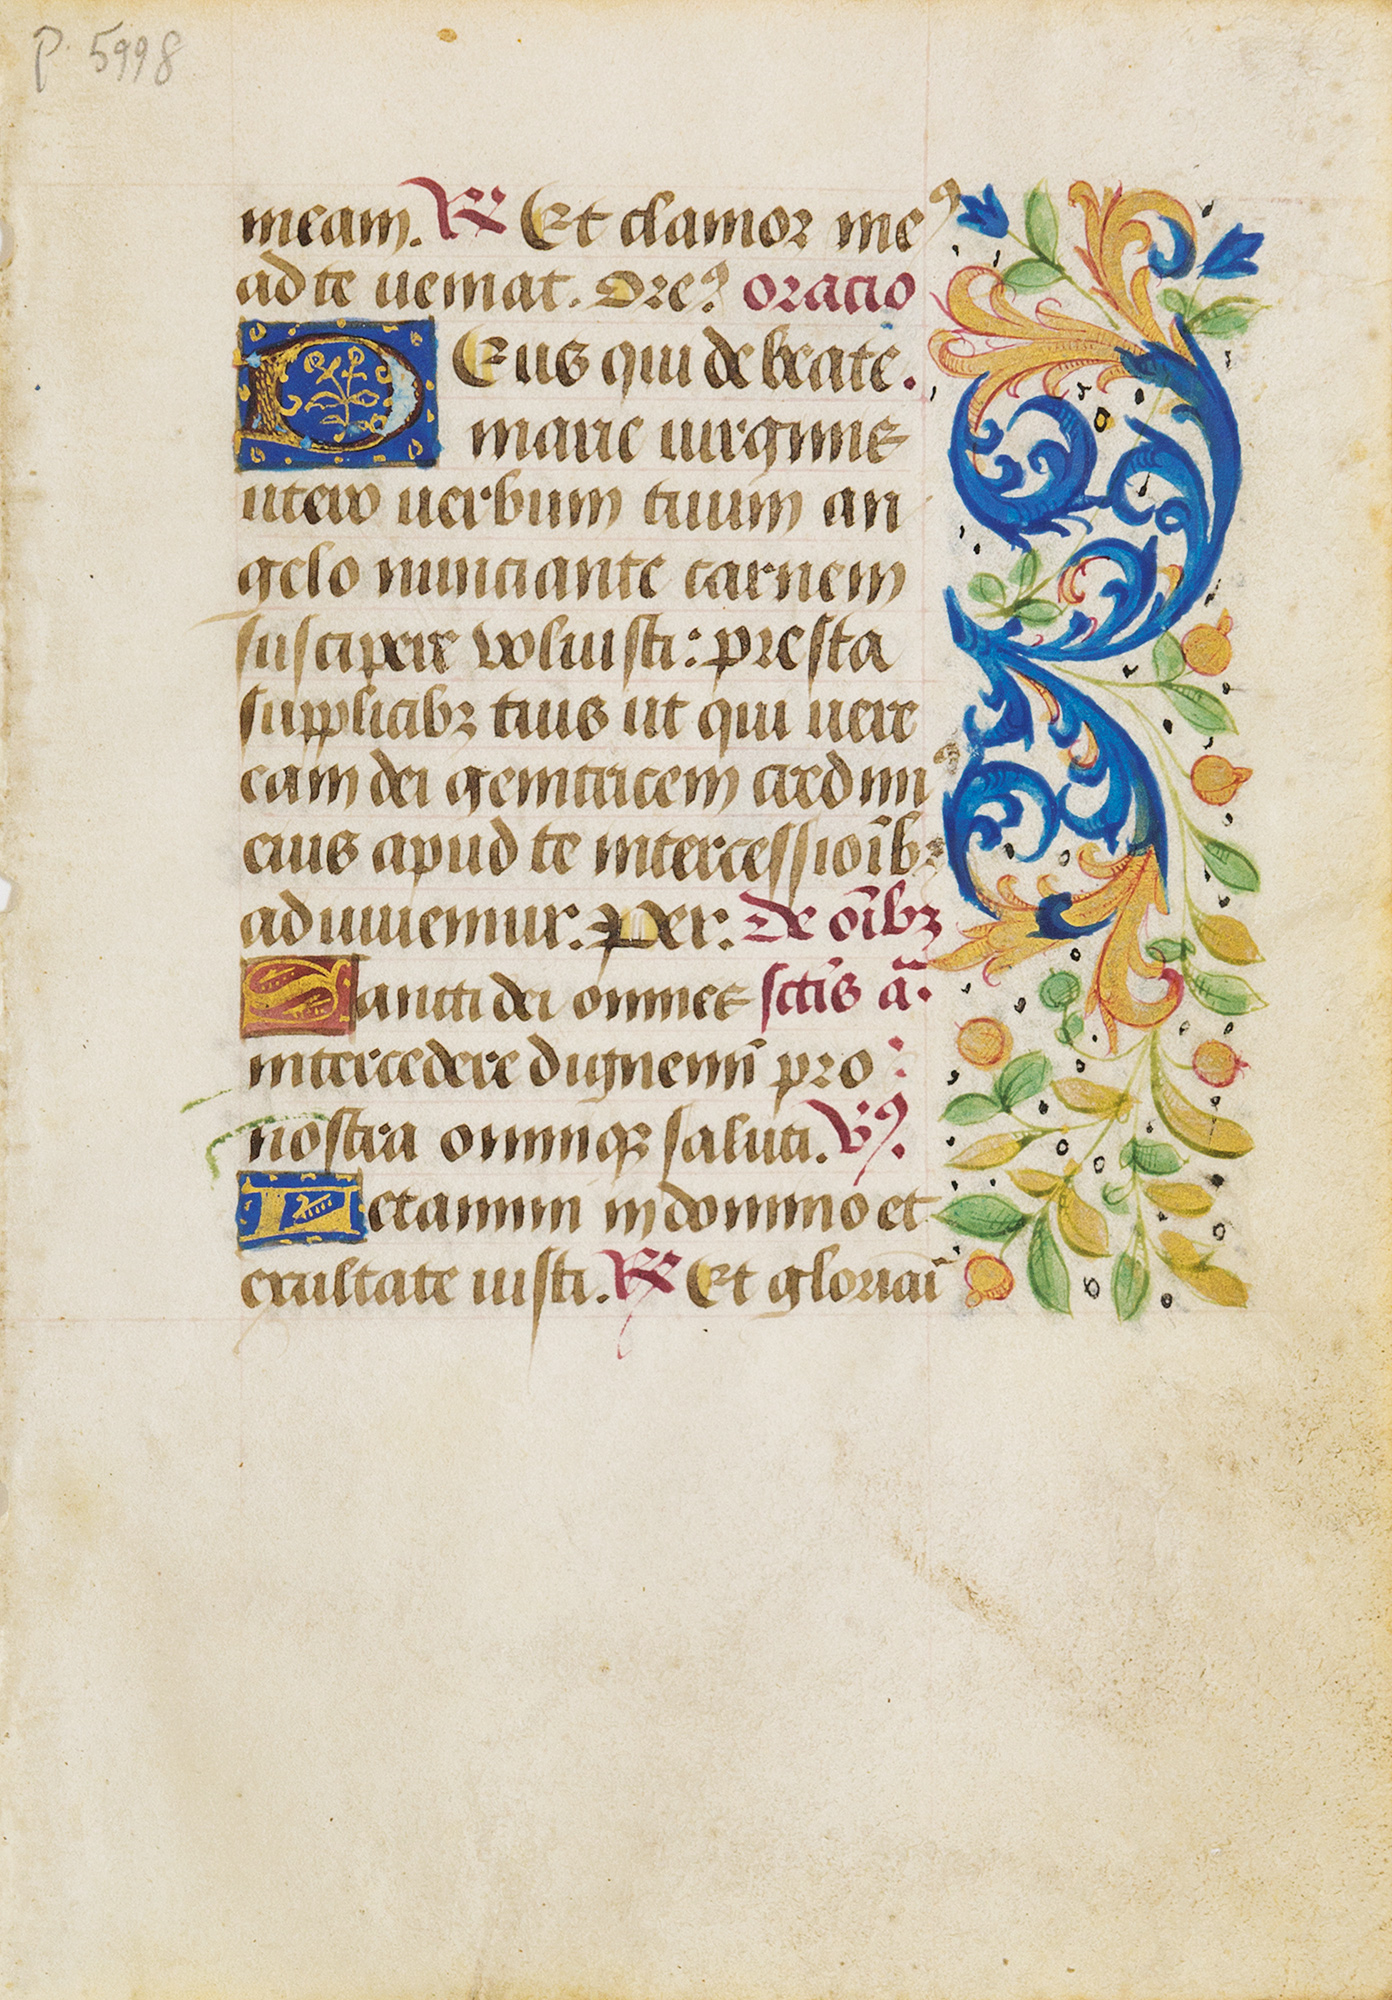 P. 5998
meam. R Et clamor me⁹
ad te ueniat. Orem⁹ oracio
Deus qui de beate.
marie uirginis
utero uerbum tuum an
gelo nunciante carnem
suscipere voluisti: presta
supplicibꝫ tuis ut qui uere
eam dei genitricem credim⁹
eius apud te intercessiōibꝫ
adiuuemur. Per. De oībꝫ
Sancti dei omnes sctīs ā.
intercedere dignemī pro
nostra omniūqꝫ saluti. V⁹.
Letamini in domino et
exultate iusti. R Et gloriaī